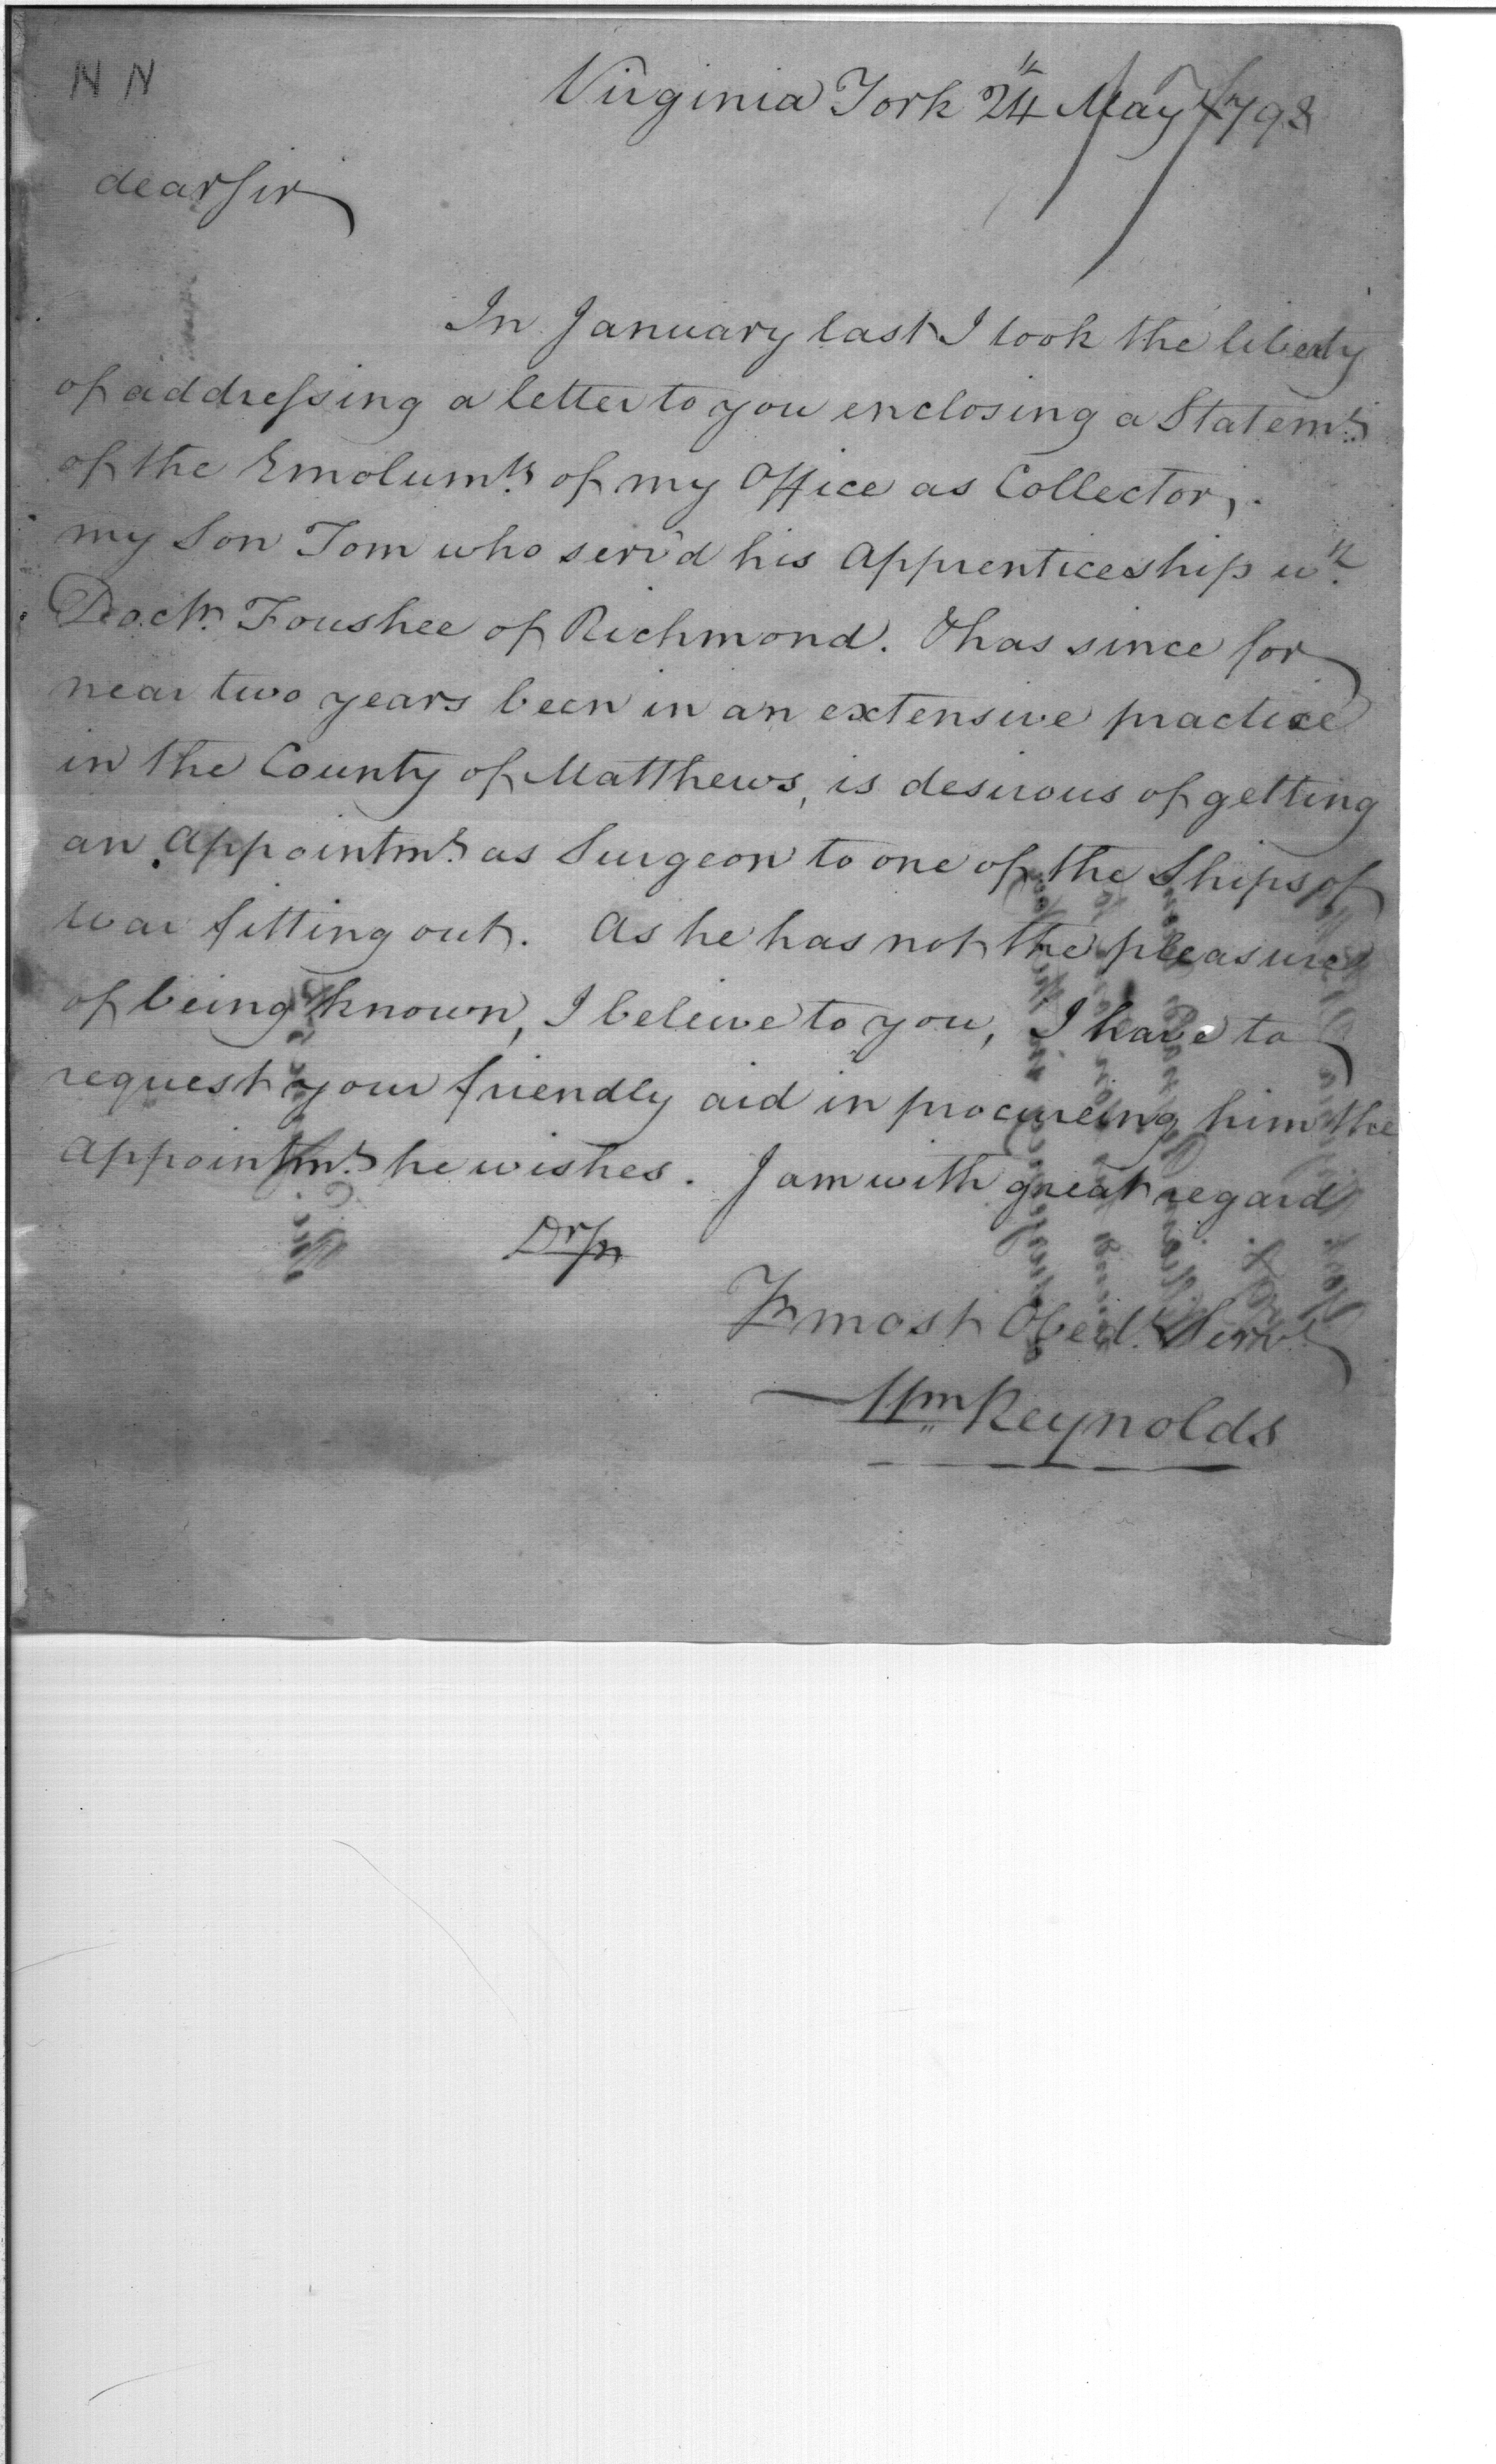 N N
Virginia York 24th May 1798
dear Sir
In January last I took the liberty
of addressing a letter to you enclosing a Statemt.
of the Emolumts. of my Office as Collector,.
my Son Tom who serv'd his Apprenticeship wth.
Doctr. Foushee of Richmond. & has since for
near two years been in an extensive practice
in the County of Matthews, is desirous of getting
an Appointmt. as Surgeon to one of the Ships of
War fitting out. As he has not the pleasure
of being known, I beleive to you, I have to
request your friendly aid in procureing him the
appointmt. he wishes. I am with great regard
Dr Sr
Yr most Obedt. Servt.
Wm Reynolds